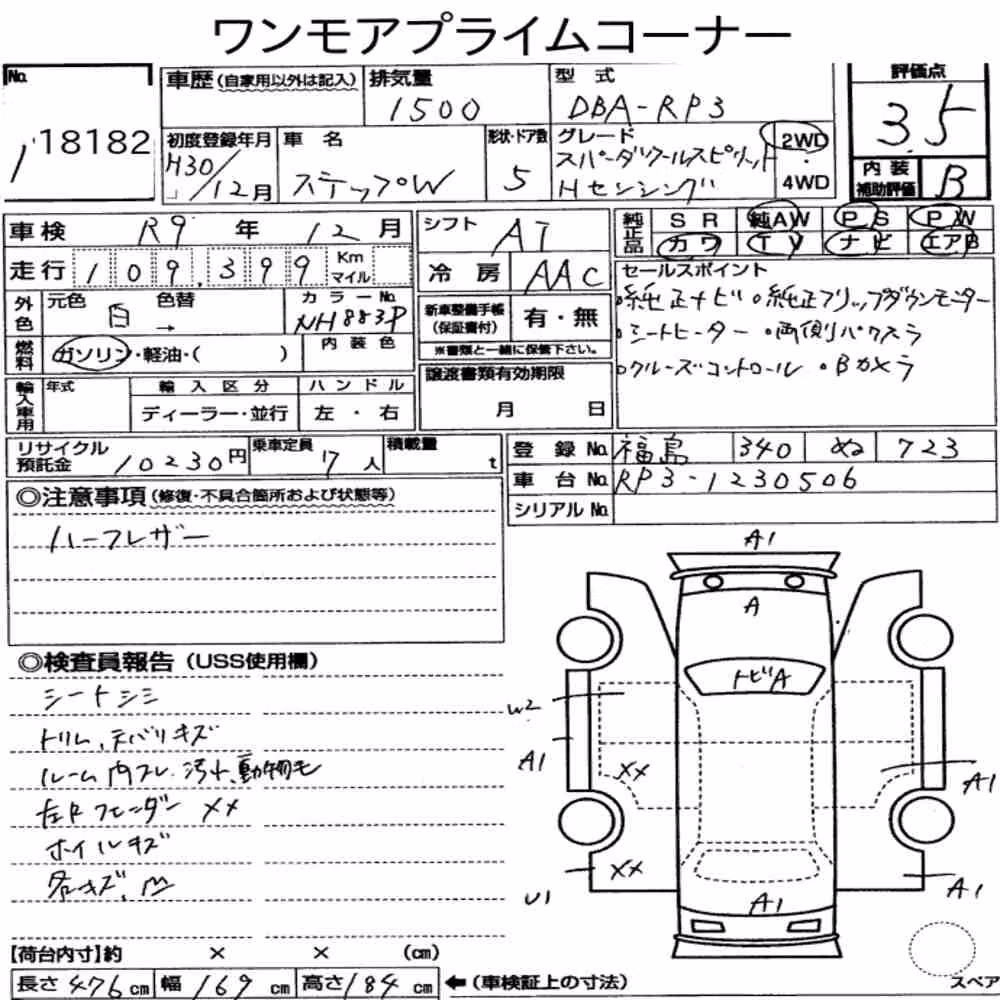 ワンモアプライムコーナー
No. 1 18182
車歴(自家用以外は記入)
排気量 1500
型式 DBA-RP3
評価点 3.5
初度登録年月 H30/12月
車名 ステップW
形状・ドア数 5
グレード スパーダクールスピリット
Hセンシング
2WD
・
4WD
内装
補助評価 B
車検 R9年 12月
走行 109,399 Km
マイル
シフト AT
冷房 AAC
純正品 SR 純AW PS PW
カワ TV ナビ エアB
外色 元色 白 色替 →
カラーNo. NH883P
燃料 ガソリン・軽油・( )
内装色
新車整備手帳
(保証書付) 有・無
※書類と一緒に保備下さい。
セールスポイント
・純正ナビ ・純正フリップダウンモニター
・シートヒーター ・両側パワスラ
・クルーズコントロール ・Bカメラ
輸入車用 年式 輸入区分 ハンドル
ディーラー・並行 左・右
譲渡書類有効期限
月 日
リサイクル
預託金 10230円
乗車定員 7人
積載量 t
登録No. 福島 340 ぬ 723
車台No. RP3-1230506
シリアルNo.
◎注意事項(修復・不具合箇所および状態等)
ハーフレザー
◎検査員報告(USS使用欄)
シートシミ
トリム、デバリキズ
ルーム内スレ、汚れ、動物毛
左Rフェンダー XX
ホイルキズ
各キズ、凹
A1
A
トビA
W2
A1
XX
A1
XX
U1
A1
A1
【荷台内寸】約 × × (cm)
長さ 476cm 幅 169cm 高さ 184cm ←(車検証上の寸法)
スペア